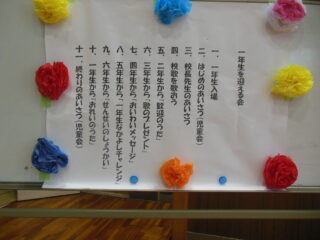 一年生を迎える会
一、一年生入場
二、はじめのあいさつ(児童会)
三、校長先生のあいさつ
四、校歌を歌おう
五、二年生から「歓迎のうた」
六、三年生から「歌のプレゼント」
七、四年生から「おいわいメッセージ」
八、五年生から「一年生なかよしチャレンジ」
九、六年生から「せんせいのしょうかい」
十、一年生から「おれいのうた」
十一、終わりのあいさつ(児童会)